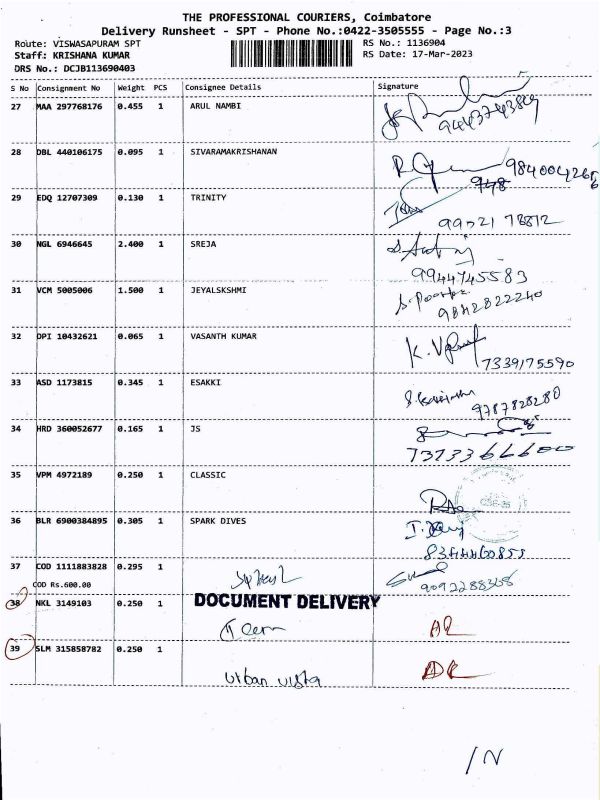 THE PROFESSIONAL COURIERS, Coimbatore
Delivery Runsheet - SPT - Phone No.:0422-3505555 - Page No.:3
Route: VISWASAPURAM SPT RS No.: 1136904
Staff: KRISHANA KUMAR RS Date: 17-Mar-2023
DRS No.: DCJB113690403
S No Consignment No Weight PCS Consignee Details Signature
27 MAA 297768176 0.455 1 ARUL NAMBI
9443743869
28 DBL 440106175 0.095 1 SIVARAMAKRISHANAN
948
29 EDQ 12707309 0.130 1 TRINITY
30 NGL 6946645 2.400 1 SREJA
9944745583
31 VCM 5005006 1.500 1 JEYALSKSHMI
9842822240
32 DPI 10432621 0.065 1 VASANTH KUMAR
7339175590
33 ASD 1173815 0.345 1 ESAKKI
9787828280
34 HRD 360052677 0.165 1 JS
7373366600
35 VPM 4972189 0.250 1 CLASSIC
36 BLR 6900384895 0.305 1 SPARK DIVES
37 COD 1111883828 0.295 1
COD Rs.600.00
38 NKL 3149103 0.250 1 DOCUMENT DELIVERY
39 SLM 315858782 0.250 1
Urban vista
/N